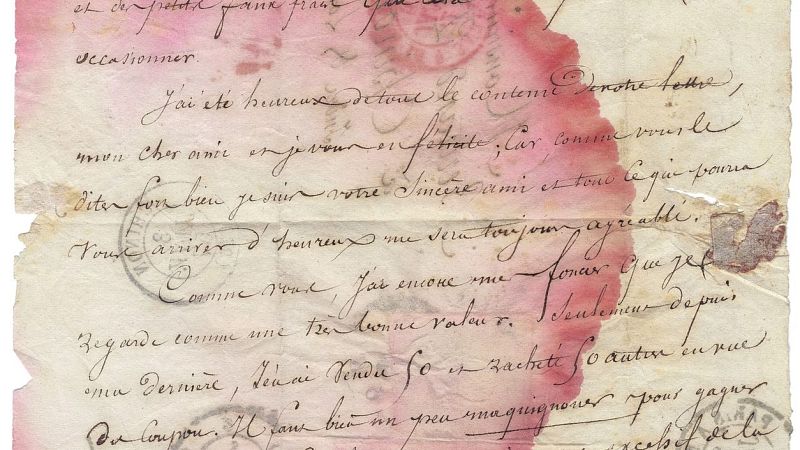 et des petits faux frais que cela
occasionner.
J'ai été heureux de tout le contenu de votre lettre,
mon cher ami et je vous en félicite; Car, comme vous le
dites fort bien je suis votre Sincère ami et tout ce que pourra
Vous arriver d'heureux me sera toujours agréable.
Comme vous, J'ai encore me que je
regarde comme une très bonne valeur. Seulement depuis
ma dernière, J'en ai vendu 50 et racheté 50 autres en vue
du Coupon. Il faut bien un peu maquignoner pour gagner
excessif de la